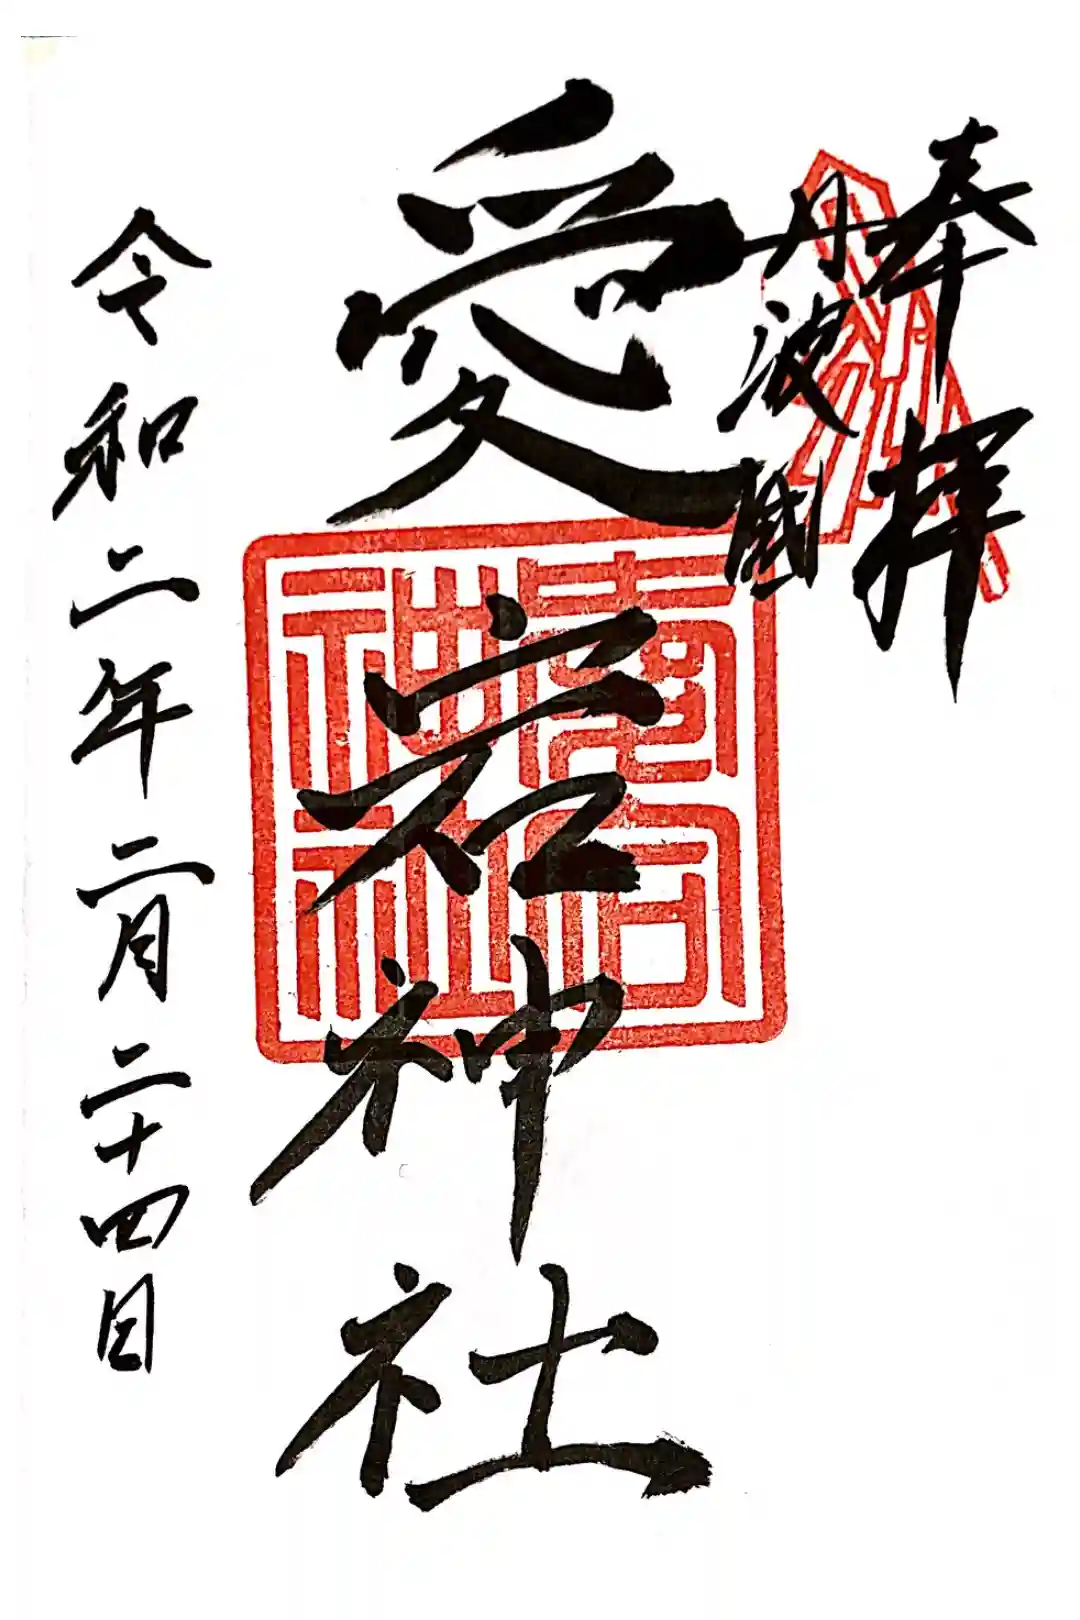 奉拝
丹波國
愛宕神社
愛宕神社
令和二年二月二十四日